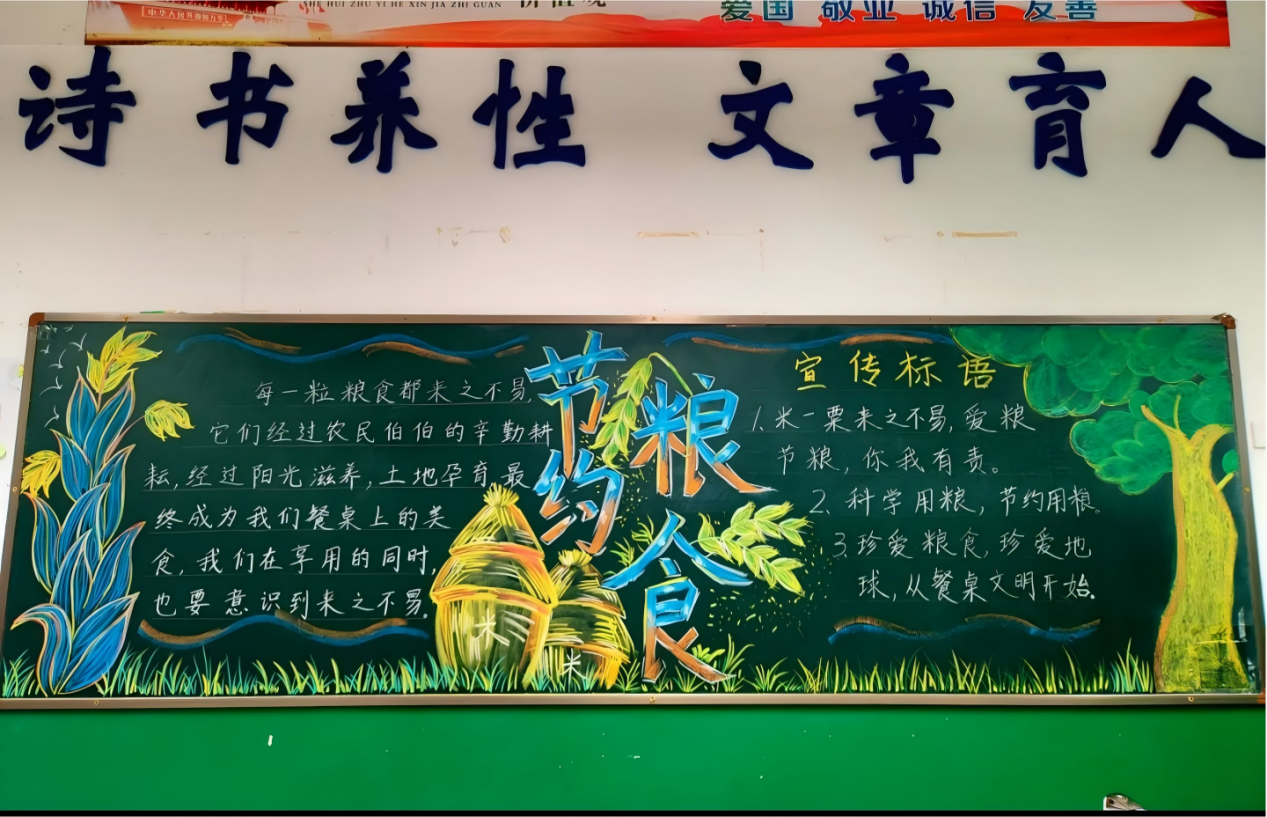 中华人民共和国万岁
HUI ZHU YI HE XIN JIA ZHI GUAN
价值观
爱国 敬业 诚信 友善
诗书养性 文章育人
每一粒粮食都来之不易,
它们经过农民伯伯的辛勤耕
耘,经过阳光滋养,土地孕育,最
终成为我们餐桌上的美
食,我们在享用的同时,
也要意识到来之不易.
节约
粮食
米
米
宣传标语
1.米一粟来之不易,爱粮
节粮,你我有责。
2.科学用粮,节约用粮。
3.珍爱粮食,珍爱地
球,从餐桌文明开始.